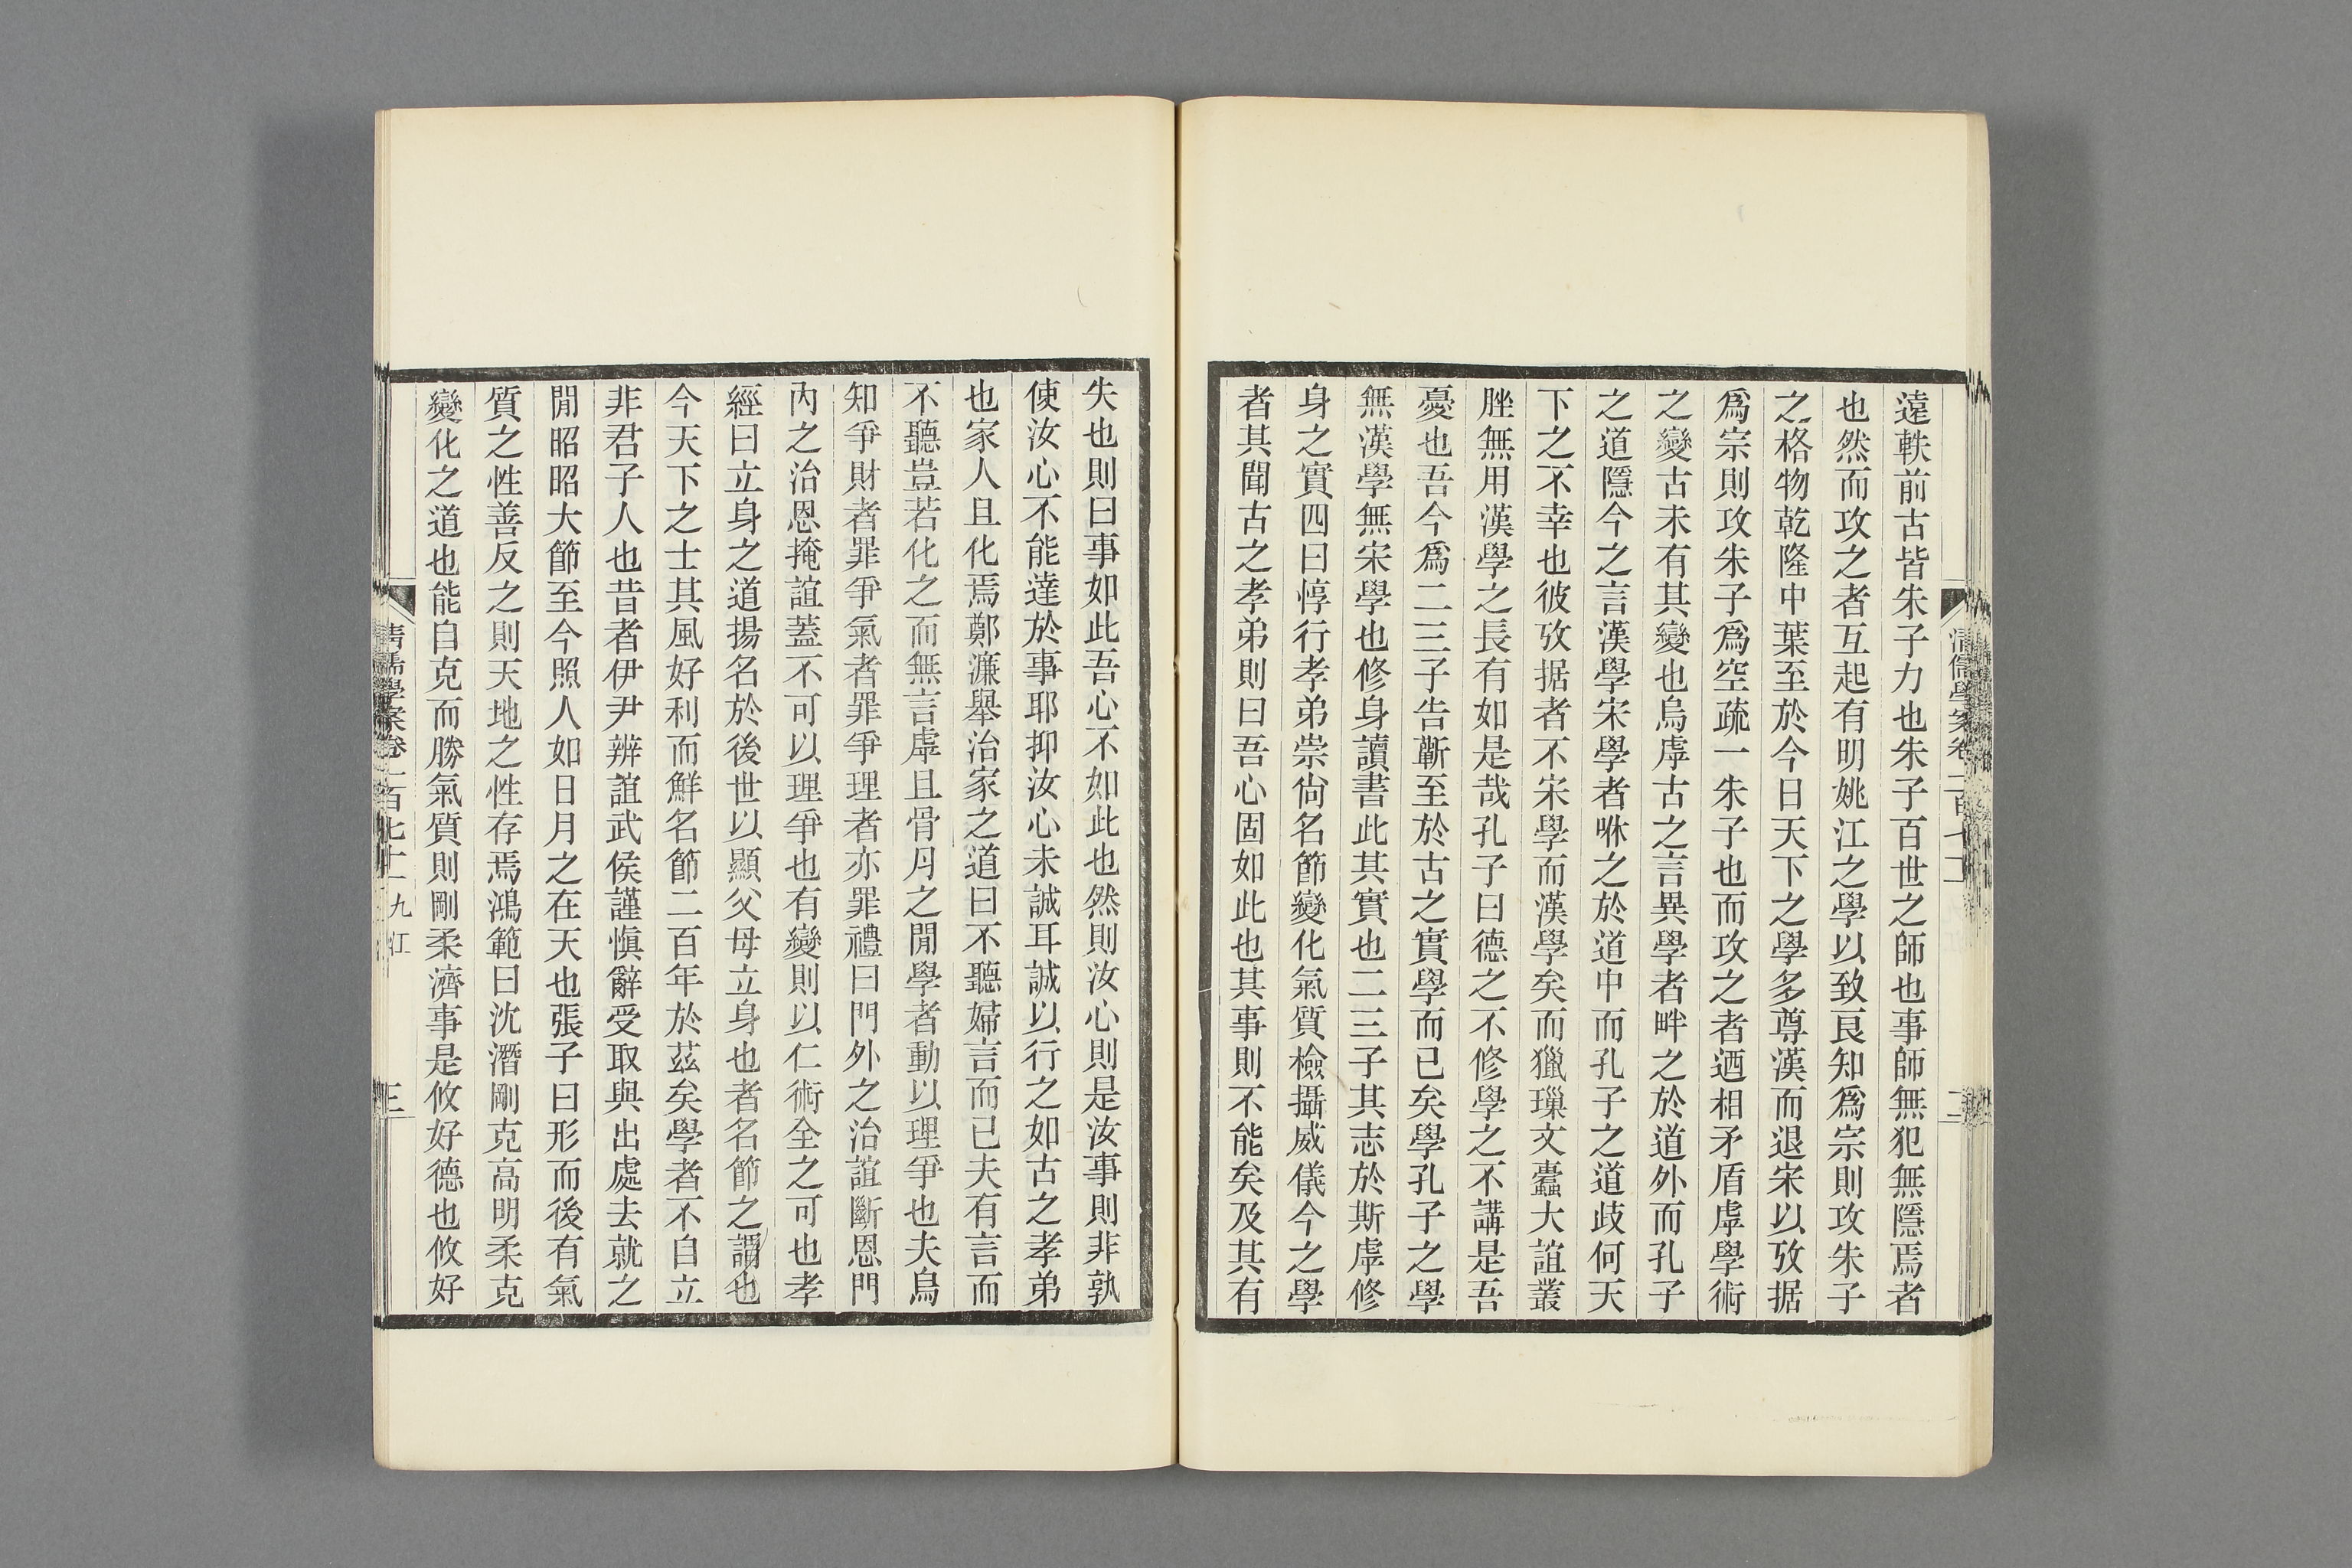 遠軼前古皆朱子力也朱子百世之師也事師無犯無隱焉者
也然而攻之者互起有明姚江之學以致良知爲宗則攻朱子
之格物乾隆中葉至於今日天下之學多尊漢而退宋以攷据
爲宗則攻朱子爲空疏一朱子也而攻之者迺相矛盾虖學術
之變古未有其變也烏虖古之言異學者畔之於道外而孔子
之道隱今之言漢學宋學者咻之於道中而孔子之道歧何天
下之不幸也彼攷据者不宋學而漢學矣而獵璅文蠹大誼叢
脞無用漢學之長有如是哉孔子曰德之不修學之不講是吾
憂也吾今爲二三子告蘄至於古之實學而已矣學孔子之學
無漢學無宋學也修身讀書此其實也二三子其志於斯虖修
身之實四曰惇行孝弟崇尙名節變化氣質檢攝威儀今之學
者其聞古之孝弟則曰吾心固如此也其事則不能矣及其有
失也則曰事如此吾心不如此也然則汝心則是汝事則非孰
使汝心不能達於事耶抑汝心未誠耳誠以行之如古之孝弟
也家人且化焉鄭濂舉治家之道曰不聽婦言而已夫有言而
不聽豈若化之而無言虖且骨月之閒學者動以理爭也夫烏
知爭財者罪爭氣者罪爭理者亦罪禮曰門外之治誼斷恩門
內之治恩掩誼蓋不可以理爭也有變則以仁術全之可也孝
經曰立身之道揚名於後世以顯父母立身也者名節之謂也
今天下之士其風好利而鮮名節二百年於茲矣學者不自立
非君子人也昔者伊尹辨誼武侯謹愼辭受取與出處去就之
閒昭昭大節至今照人如日月之在天也張子曰形而後有氣
質之性善反之則天地之性存焉鴻範曰沈潛剛克高明柔克
變化之道也能自克而勝氣質則剛柔濟事是攸好德也攸好
清儒學案卷一百七十一 九江
三